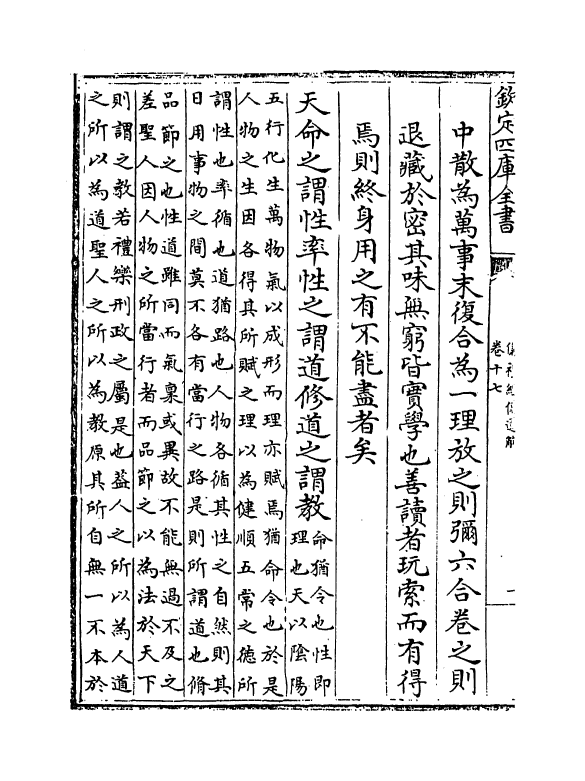 欽定四庫全書
卷十七
中散為萬事末復合為一理放之則彌六合卷之則
退藏於密其味無窮皆實學也善讀者玩索而有得
焉則終身用之有不能盡者矣
天命之謂性率性之謂道修道之謂教
命猶令也性即
理也天以陰陽
五行化生萬物氣以成形而理亦賦焉猶命令也於是
人物之生因各得其所賦之理以為健順五常之德所
謂性也率循也道猶路也人物各循其性之自然則其
日用事物之間莫不各有當行之路是則所謂道也脩
品節之也性道雖同而氣稟或異故不能無過不及之
差聖人因人物之所當行者而品節之以為法於天下
則謂之教若禮樂刑政之屬是也葢人之所以為人道
之所以為道聖人之所以為教原其所自無一不本於